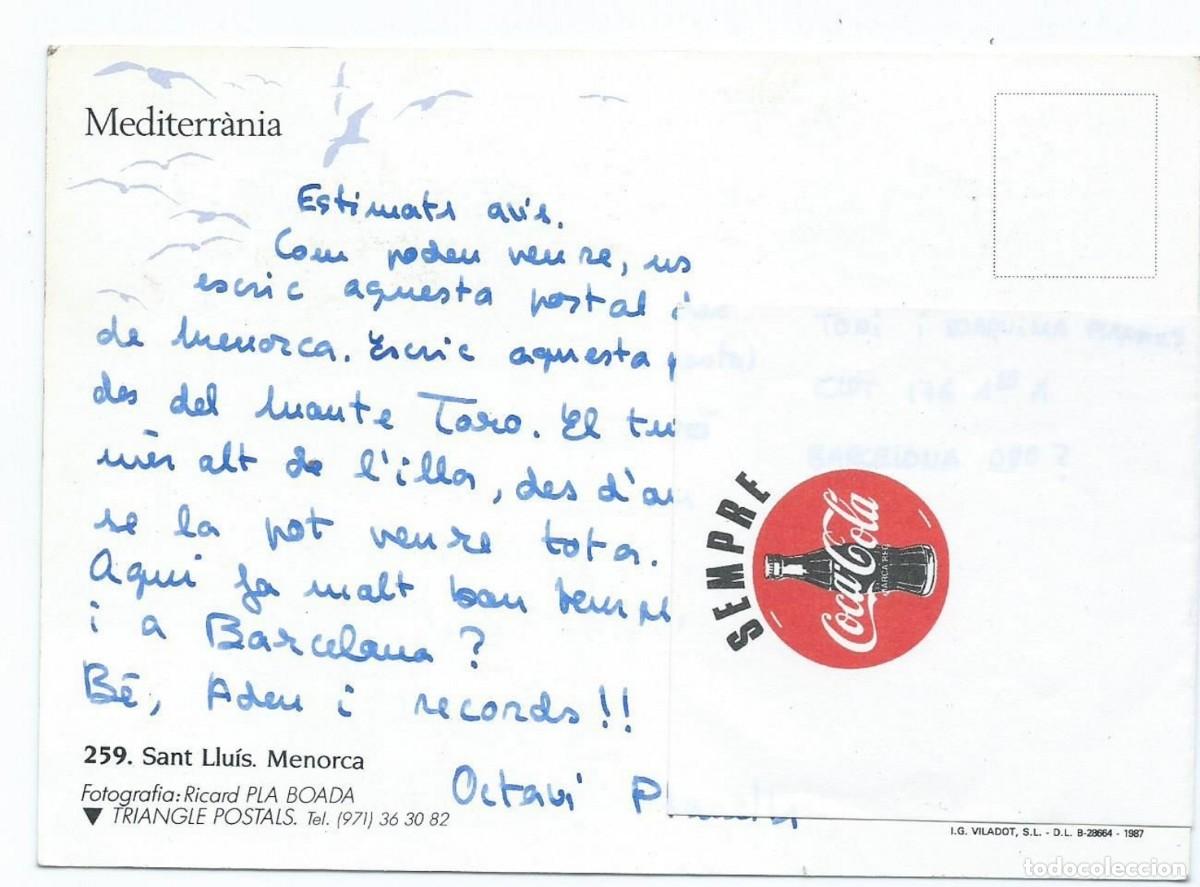 Mediterrània
Estimats avis.
Com poden veure, us
escric aquesta postal
de Menorca. Escric aquesta
des del Muante Toro. El
més alt de l'illa, des d'
se la pot veure tota.
Aqui fa malt bon temps,
i a Barcelana?
Bé, Adeu i records!!
Octavi
259. Sant Lluís. Menorca
Fotografia: Ricard PLA BOADA
▼ TRIANGLE POSTALS. Tel. (971) 36 30 82
SEMPRE
Coca-Cola
MARCA REG.
BARCELONA
I.G. VILADOT, S.L. - D.L. B-28664 - 1987
todocoleccion